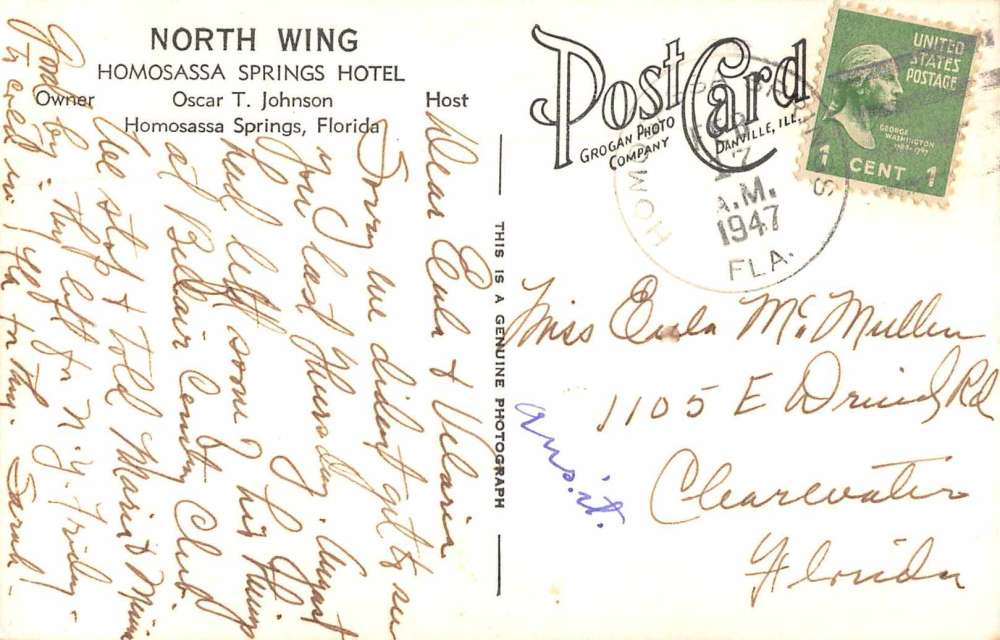 NORTH WING
HOMOSASSA SPRINGS HOTEL
Owner Oscar T. Johnson Host
Homosassa Springs, Florida
Dear Eula & Velaria
Sorry we dident get to see
you last Thursday. August
had left some of his things
at Bellair Country Club
We stop & told Marie & Minnie
Good by. they left for N.Y. Friday.
Sarah
THIS IS A GENUINE PHOTOGRAPH
Post Card
GROGAN PHOTO COMPANY DANVILLE, ILL.
A.M.
1947
FLA.
UNITED
STATES
POSTAGE
GEORGE
WASHINGTON
1 CENT 1
Miss Eula McMullen
1105 E Druid Rd
Clearwater
Florida
ans. it.